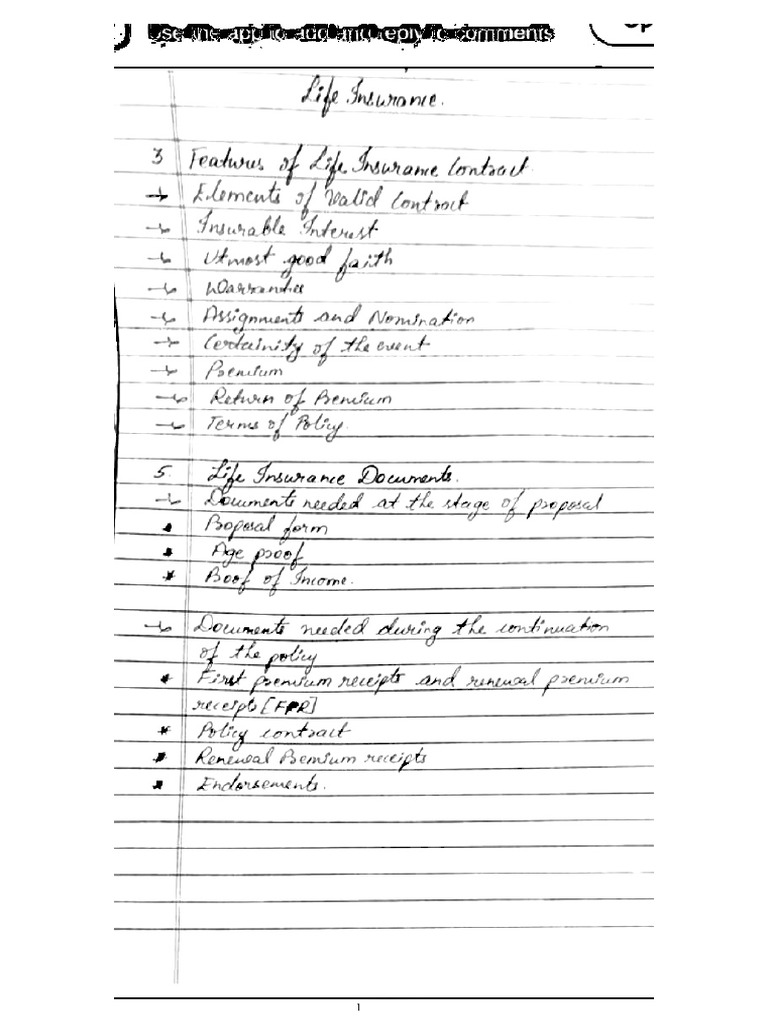 Use the app to add and reply to comments
Op
Life Insurance.
3 Features of Life Insurance Contract
→ Elements of Valid Contract
→ Insurable Interest
→ Utmost good faith
→ Warranties
→ Assignments and Nomination
→ Certainity of the event
→ Premium
→ Return of Premium
→ Terms of Policy.
5. Life Insurance Documents.
→ Documents needed at the stage of proposal
* Proposal form
* Age proof
* Proof of Income.
→ Documents needed during the continuation
of the policy
* First premium receipts and renewal premium
receipts [FPR]
* Policy contract
* Renewal Premium receipts
* Endorsements.
1